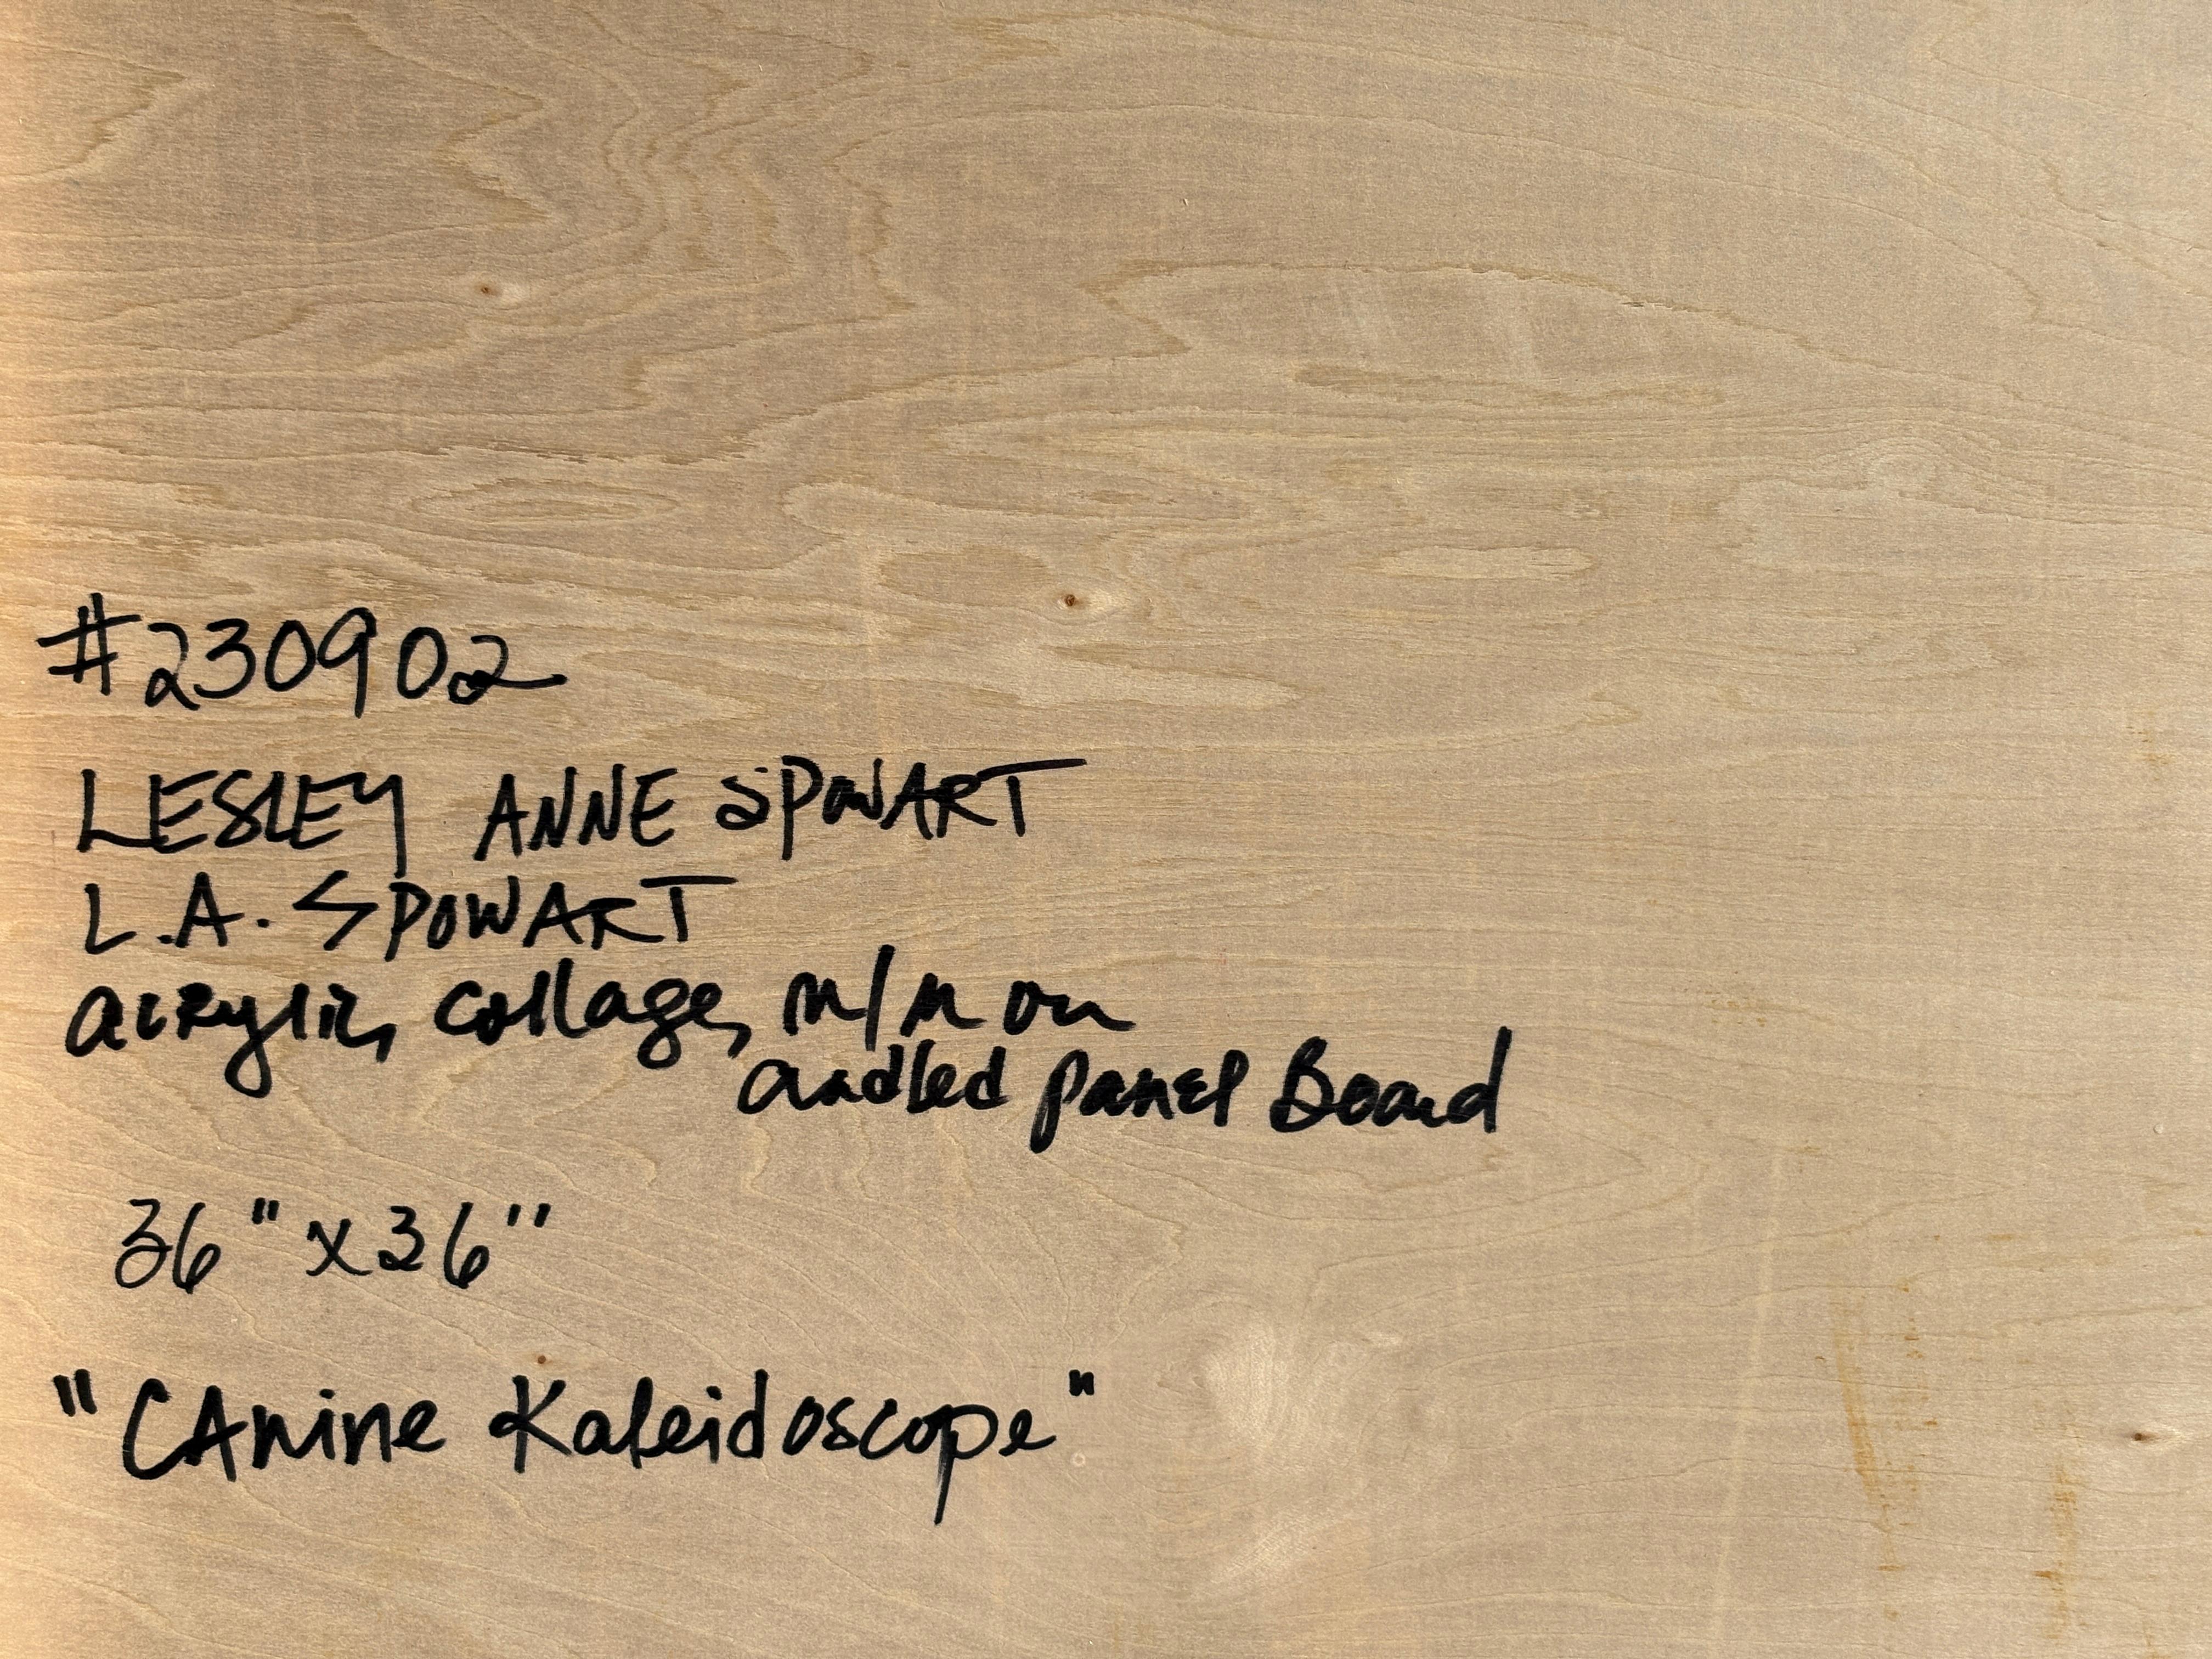 #230902
LESLEY ANNE SPOWART
L.A. SPOWART
acrylic, collage, m/m on
panel Board
36" x 36"
"CAnine Kaleidoscope"